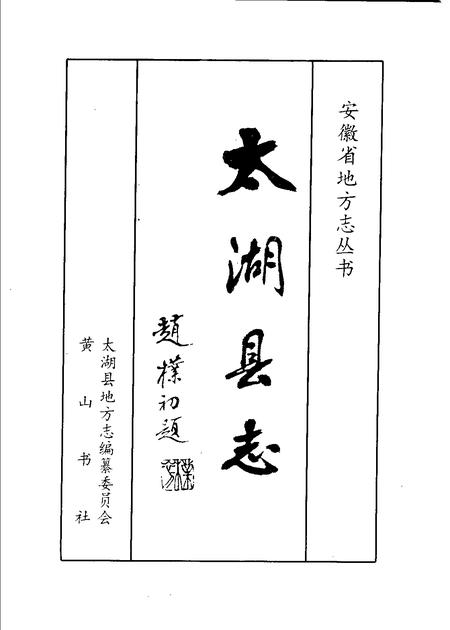 安徽省地方志丛书
太湖县志
趙樸初題
太湖县地方志编纂委员会
黄山书社